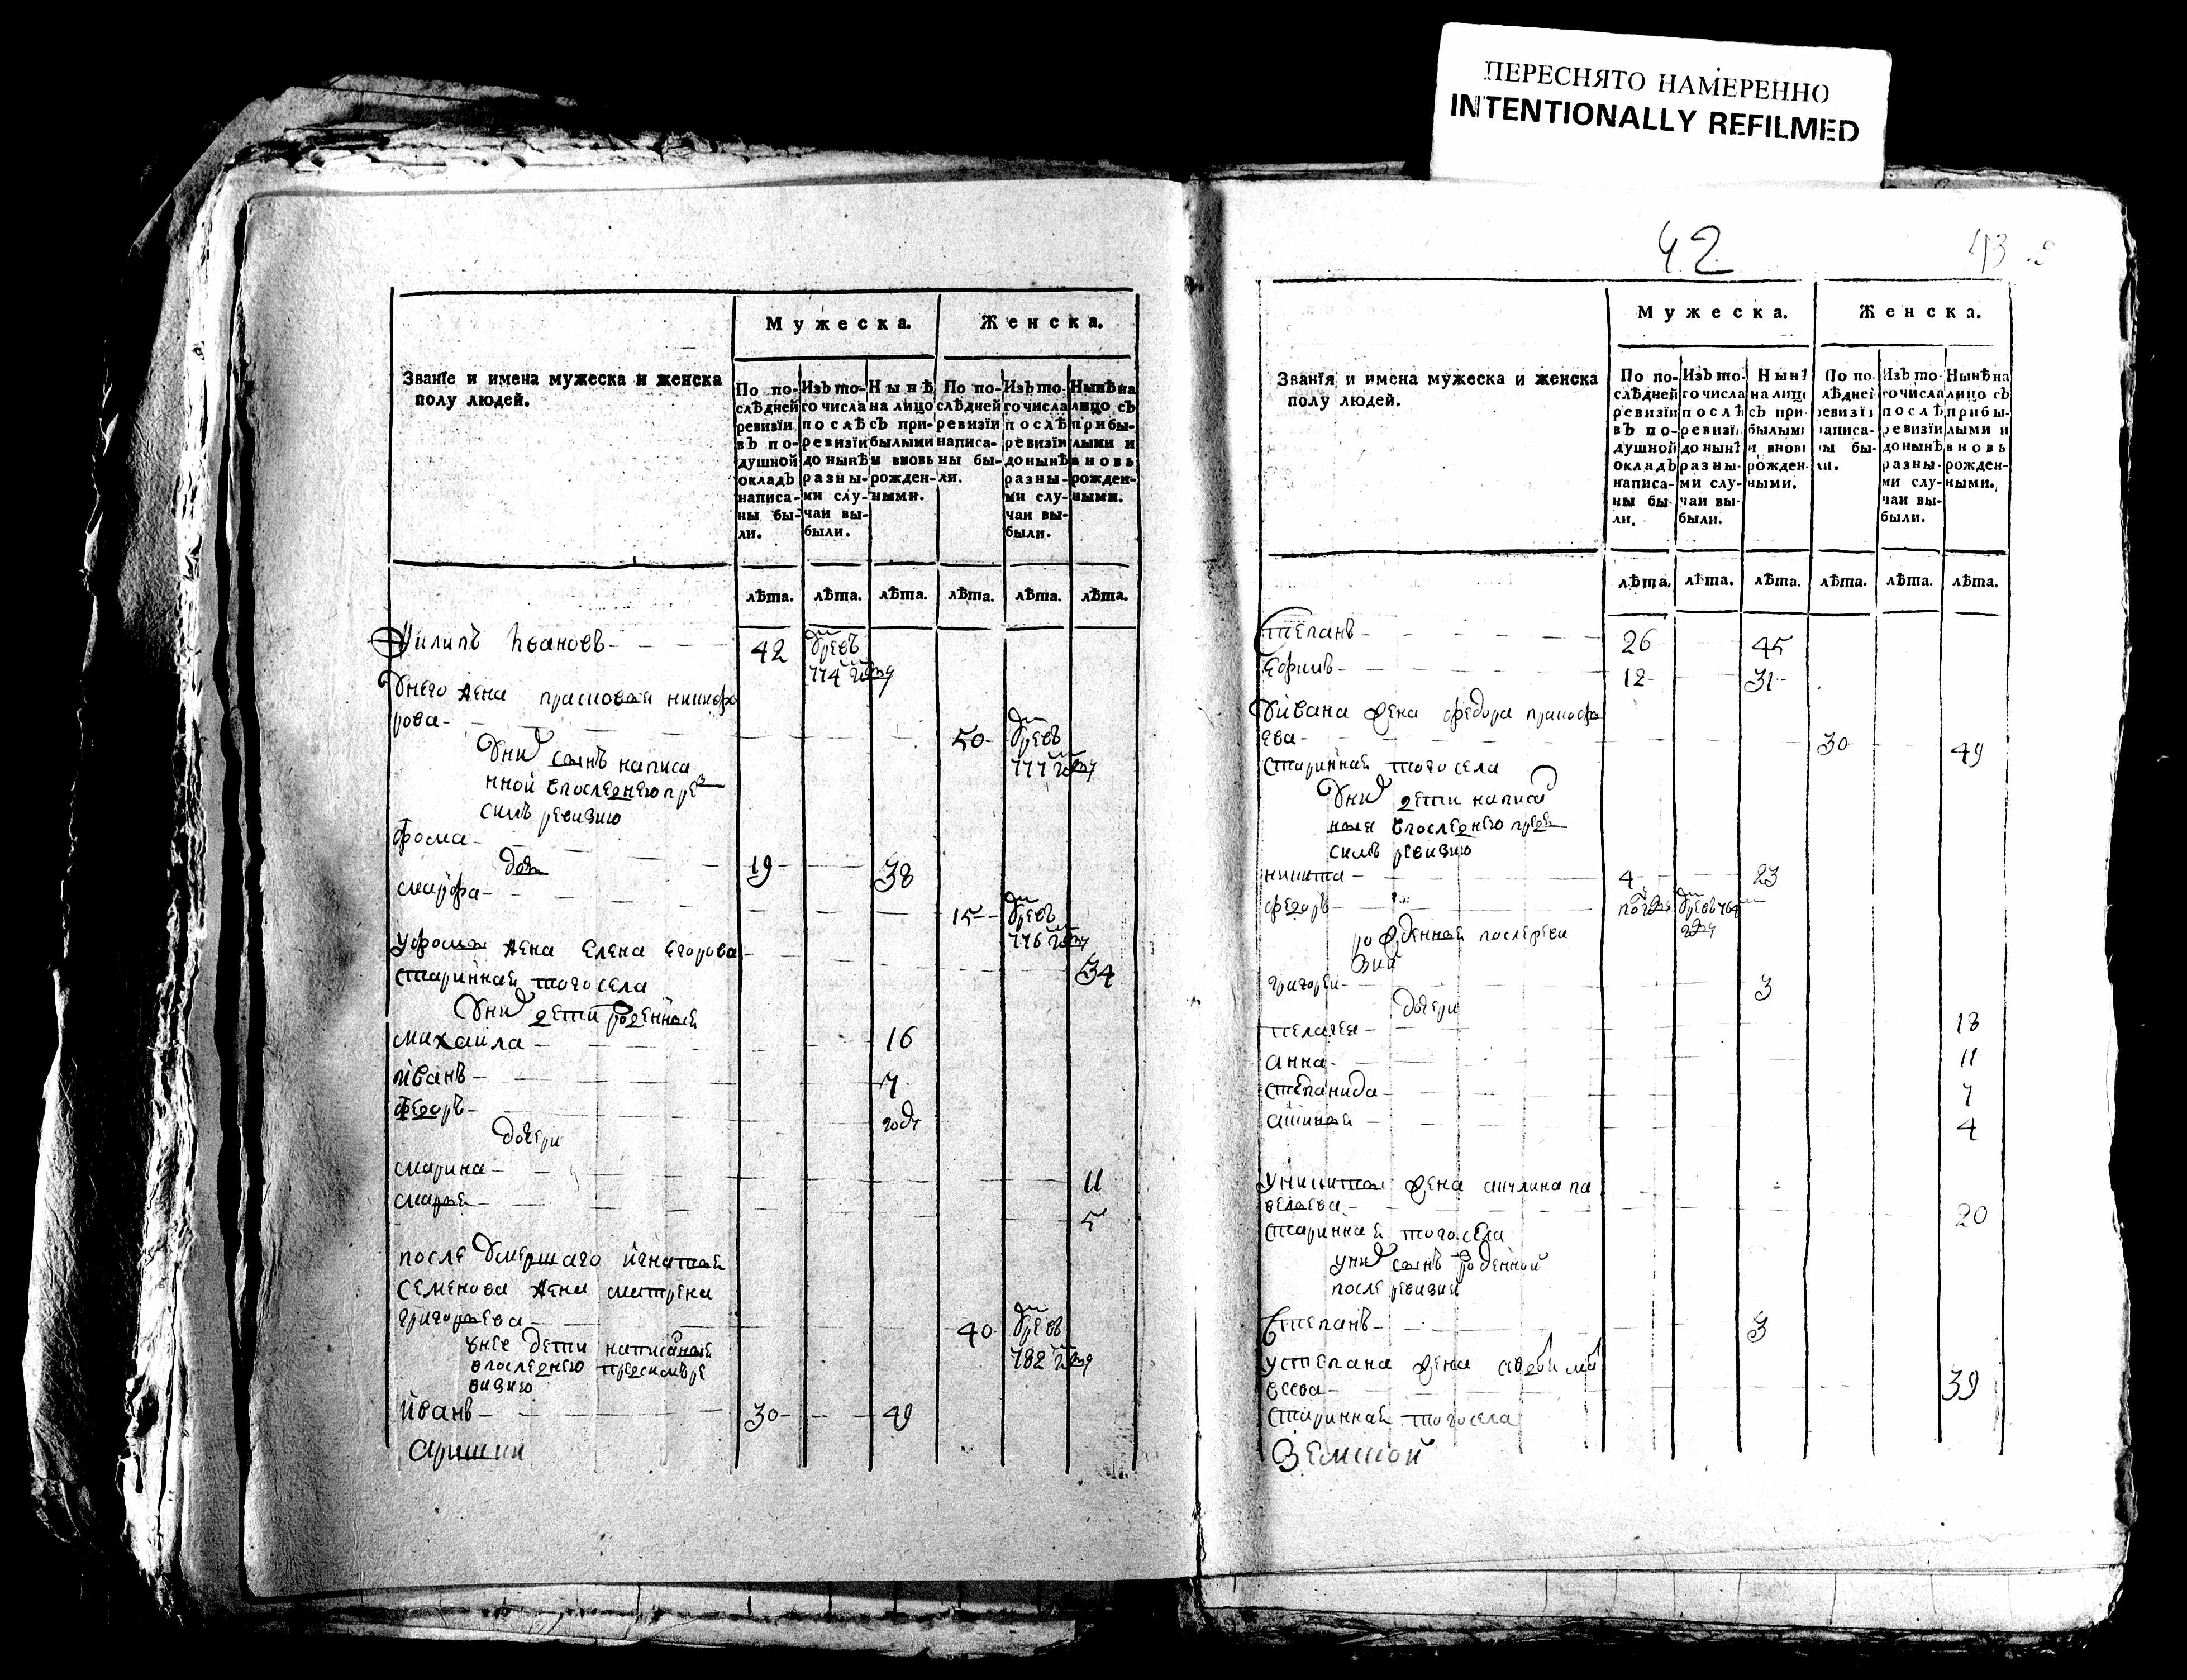 ПЕРЕСНЯТО НАМЕРЕННО
INTENTIONALLY REFILMED
Званіе и имена мужеска и женска
полу людей.
Мужеска.
Женска.
По по-
слѣдней
ревизіи
въ по-
душной
окладъ
написа-
ны бы-
ли.
Изъ то-
го числа
послѣ
ревизіи
до нынѣ
разны-
ми слу-
чаи вы-
были.
Нынѣ
на лицо
съ при-
былыми
и вновь
рожден-
ными.
По по-
слѣдней
ревизіи
написа-
ны бы-
ли.
Изъ то-
го числа
послѣ
ревизіи
до нынѣ
разны-
ми слу-
чаи вы-
были.
Нынѣ на
лицо съ
прибы-
лыми и
вновь
рожден-
ными.
лѣта. лѣта. лѣта. лѣта. лѣта. лѣта.
Филипъ Ивановъ 42 умре въ
774 году
Унего жена прасковья никифо
рова 50 умре въ
777 году
Уних сынъ написа
нной впоследнею пре
симъ ревизию
Фома 19 38
доч
марфа 15 умре въ
776 году
Уфомы жена елена егорова 34
старинная тогосела
Уних дети рожденныя
михаила 16
иванъ 7
федоръ году
дочери
марина 11
марья 5
после умершаго игнатья
семенова жена матрена
григорьева 40 умре въ
782 году
унее дети написаныя
впоследнею предсимъ ре
визию
иванъ 30 49
42
43
Званія и имена мужеска и женска
полу людей.
Мужеска.
Женска.
По по-
слѣдней
ревизіи
въ по-
душной
окладъ
написа-
ны бы-
ли.
Изъ то-
го числа
послѣ
ревизі
до нынѣ
разны-
ми слу-
чаи вы-
были.
Нынѣ
на лицо
съ при-
былыми
и вновь
рожден-
ными.
По по-
слѣдней
ревизіи
написа-
ны бы-
ли.
Изъ то-
го числа
послѣ
ревизіи
до нынѣ
разны-
ми слу-
чаи вы-
были.
Нынѣ на
лицо съ
прибы-
лыми и
вновь
рожден-
ными.
лѣта. лѣта. лѣта. лѣта. лѣта. лѣта.
Степанъ 26 45
ефимъ 12 31
Уивана жена федора прокофь
ева 30 49
старинная тогосела
Уних дети написа
ныя впоследнею пред
симъ ревизию
никита 4 23
федоръ умре въ 764
году
рожденной послереви
зии
григореи 3
дочери
пелагея 18
анна 11
степанида 7
4
уникиты жена акулина па
велаева 20
старинная тогосела
уних сынъ рожденной
после ревизии
Степанъ 3
устепана жена
39
старинная тогосела
Земской